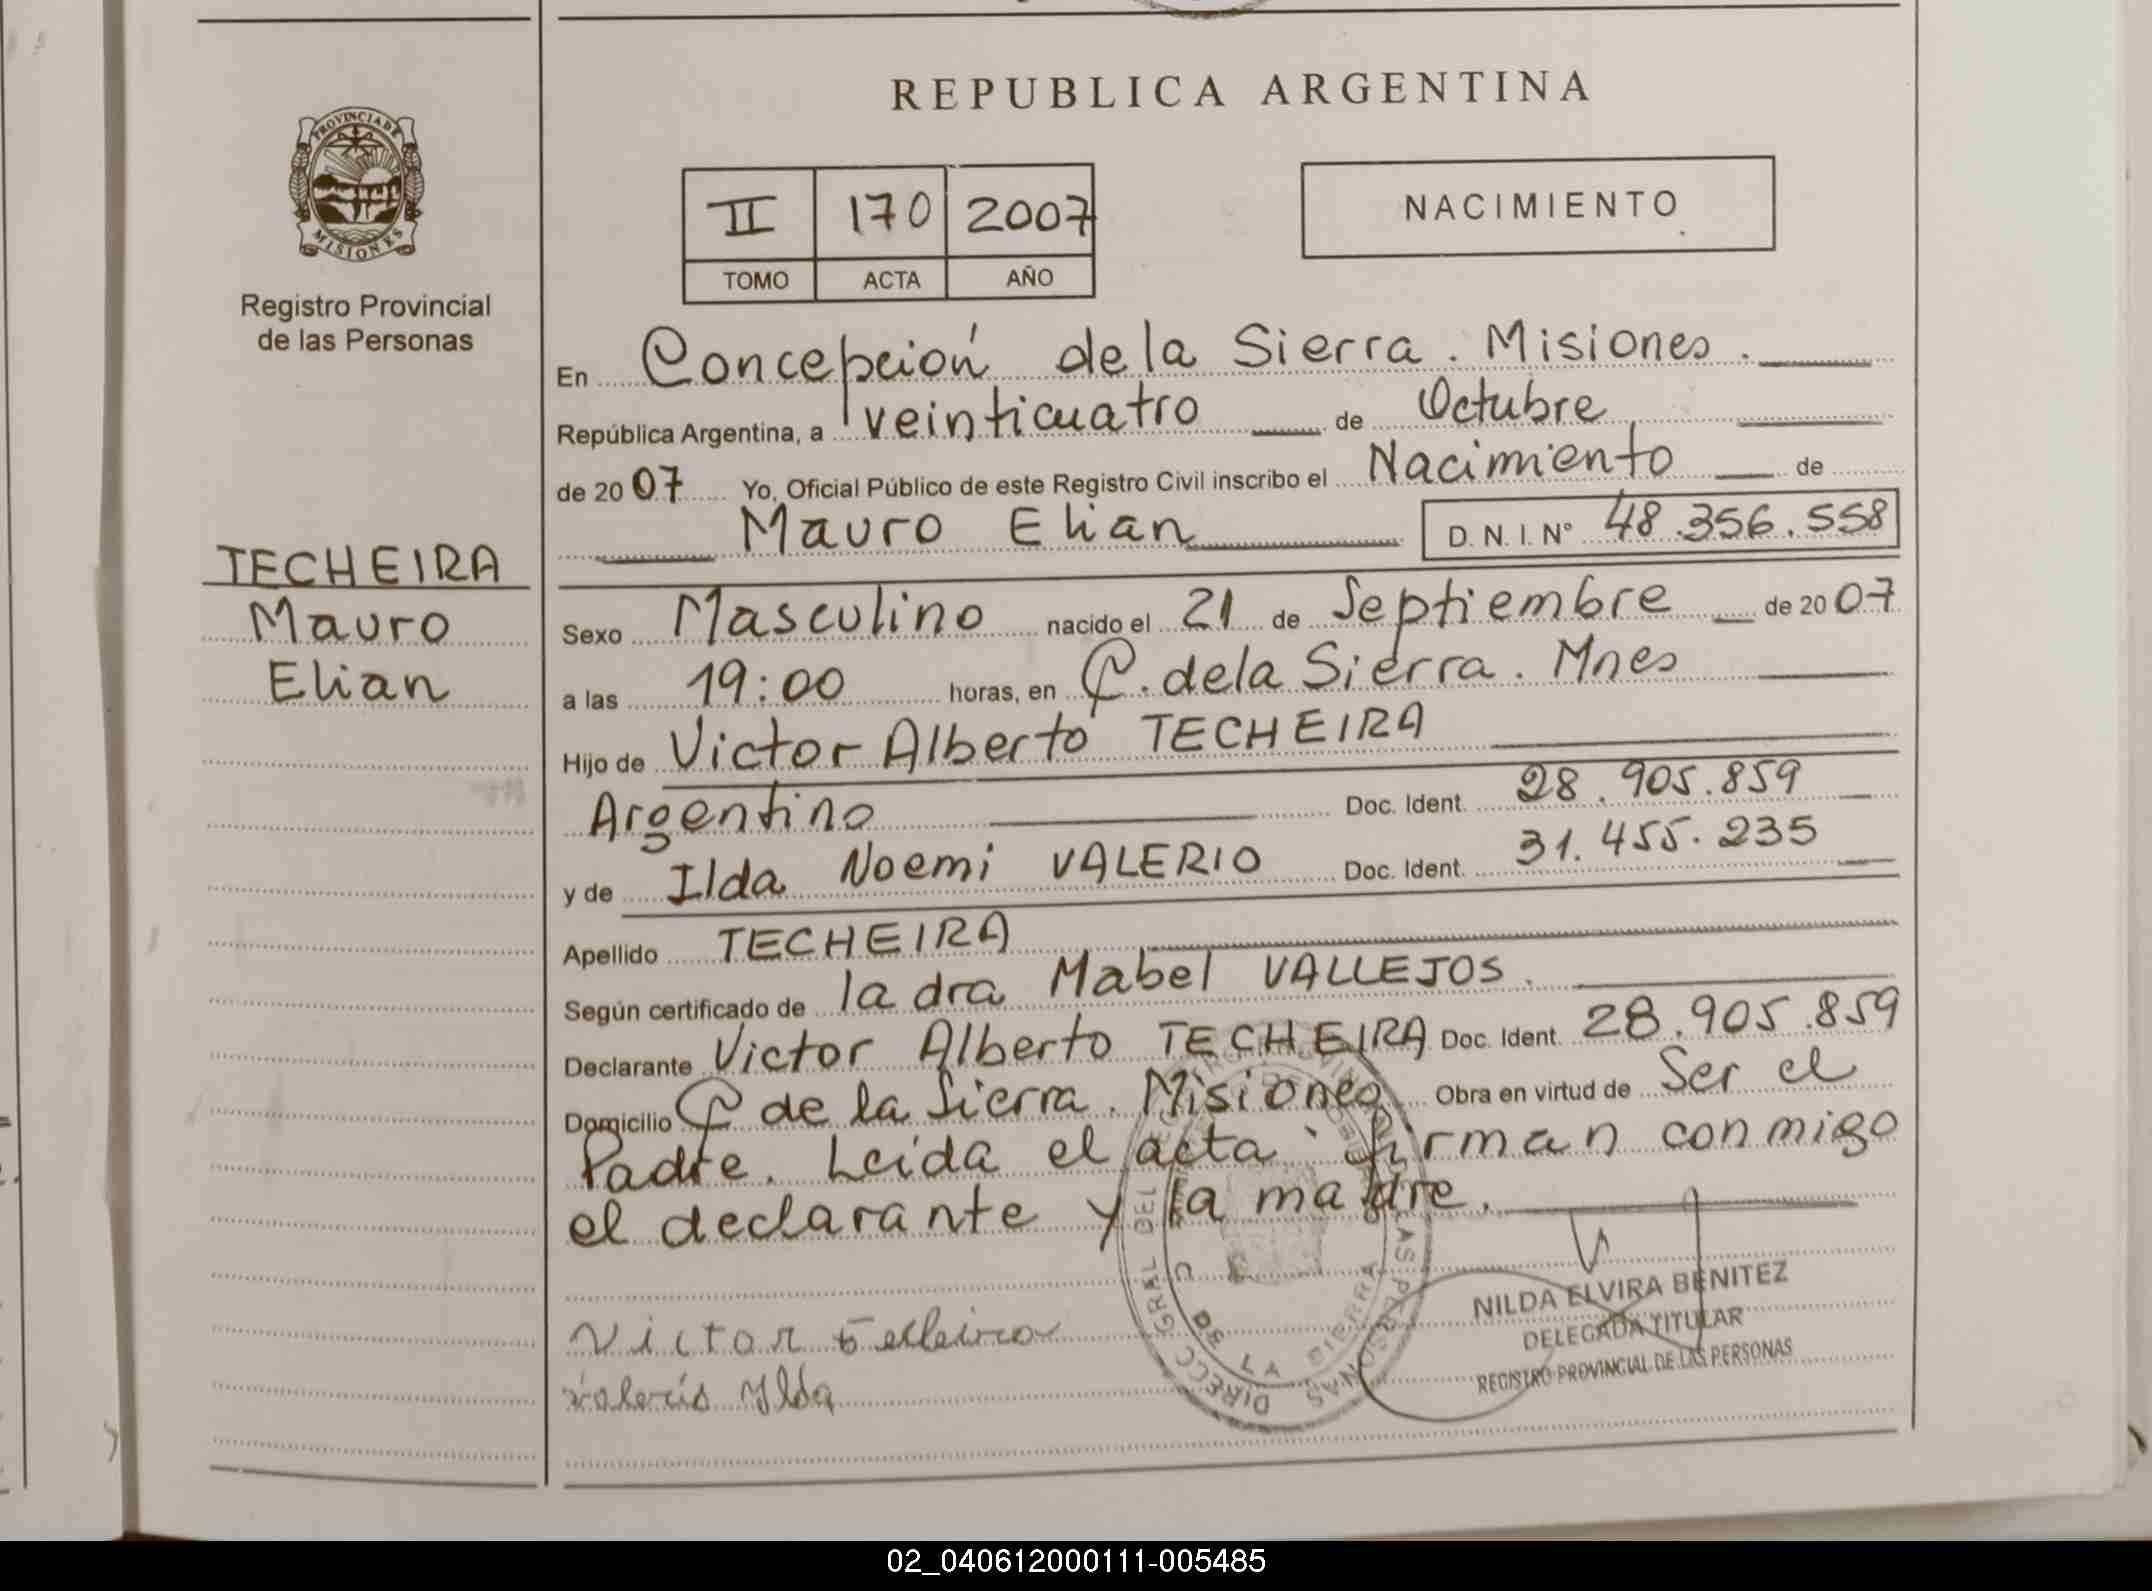 REPUBLICA ARGENTINA
PROVINCIA DE
MISIONES
Registro Provincial
de las Personas
II 170 2007
TOMO ACTA AÑO
NACIMIENTO
En Concepción de la Sierra. Misiones.
República Argentina, a veinticuatro de Octubre
de 2007 Yo, Oficial Público de este Registro Civil inscribo el Nacimiento de
Mauro Elian D. N. I. N° 48.356.558
TECHEIRA
Mauro
Elian
Sexo Masculino nacido el 21 de Septiembre de 2007
a las 19:00 horas, en C. de la Sierra. Mnes
Hijo de Victor Alberto TECHEIRA
Argentino Doc. Ident. 28.905.859
y de Ilda Noemi VALERIO Doc. Ident. 31.455.235
Apellido TECHEIRA
Según certificado de la dra Mabel VALLEJOS.
Declarante Victor Alberto TECHEIRA Doc. Ident. 28.905.859
Domicilio C de la Sierra. Misiones Obra en virtud de Ser el
Padre. Leida el acta firman conmigo
el declarante y la madre.
Victor Techeira
Valerio Ilda
DIRECC GRAL DEL
LAS PERSONAS
C DE LA SIERRA
NILDA ELVIRA BENITEZ
DELEGADA TITULAR
REGISTRO PROVINCIAL DE LAS PERSONAS
02_040612000111-005485